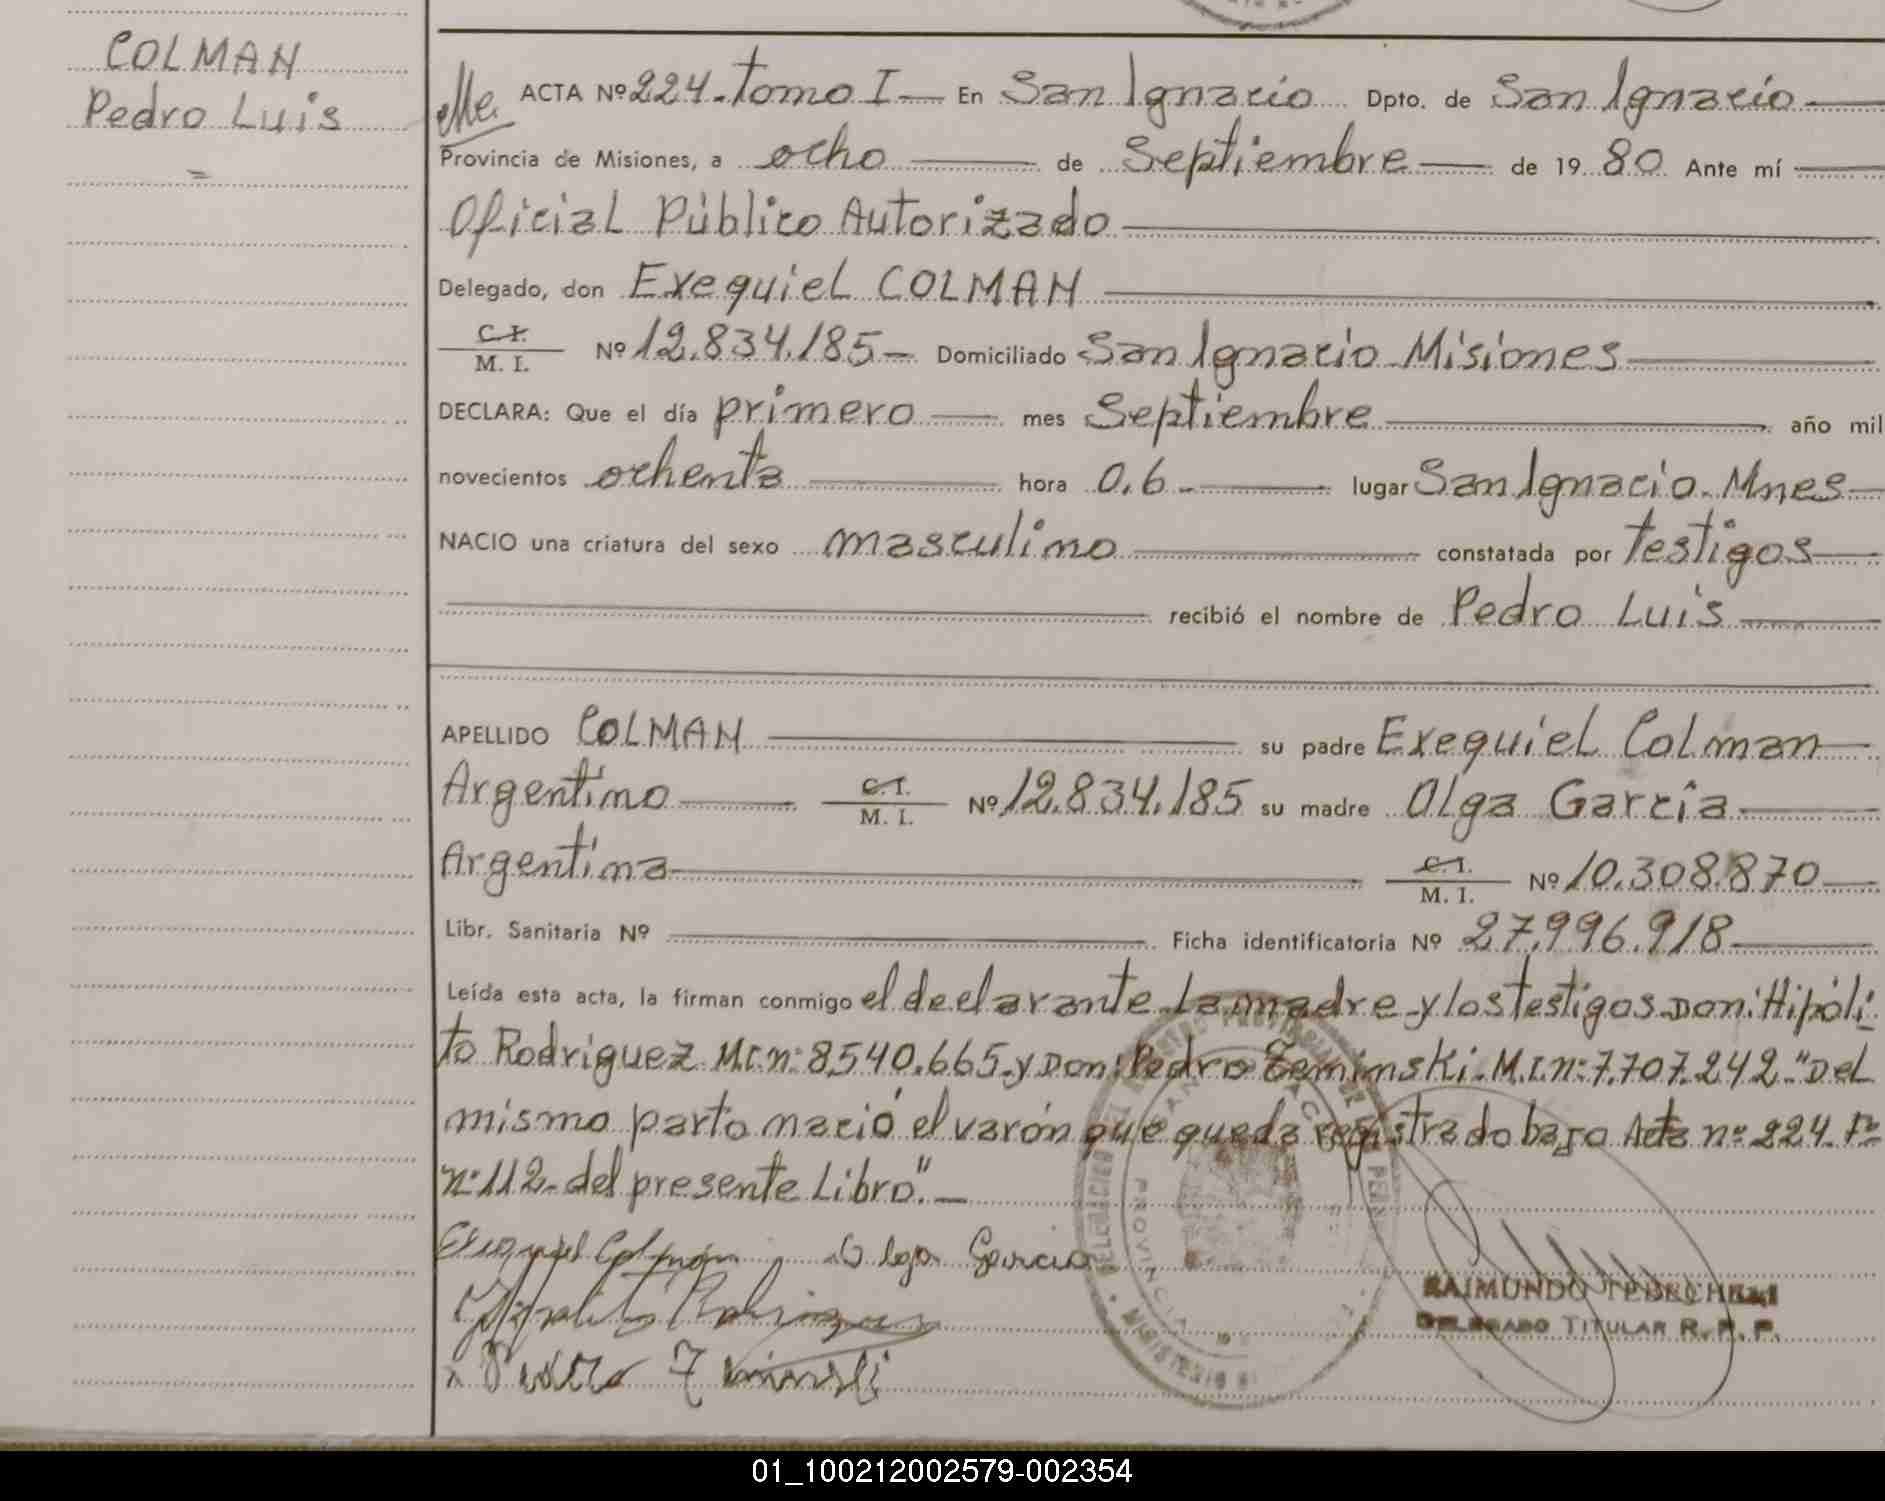 COLMAN
Pedro Luis
=
ACTA Nº 224. Tomo I — En San Ignacio Dpto. de San Ignacio
Provincia de Misiones, a ocho de Septiembre de 19 80. Ante mí
Oficial Público Autorizado
Delegado, don Exequiel COLMAN
C. I.
M. I. Nº 12.834.185 - Domiciliado San Ignacio Misiones
DECLARA: Que el día primero mes Septiembre año mil
novecientos ochenta hora 0.6 - lugar San Ignacio. Mnes
NACIO una criatura del sexo masculino constatada por testigos
recibió el nombre de Pedro Luis
APELLIDO COLMAN su padre Exequiel Colman
Argentino C. I. M. I. Nº 12.834.185 su madre Olga García
Argentina C. I. M. I. Nº 10.308.870
Libr. Sanitaria Nº Ficha identificatoria Nº 27.996.918
Leída esta acta, la firman conmigo el declarante. La madre y los testigos Don: Hipóli-
to Rodriguez M.I.n: 8.540.665 y Don: Pedro Zeminski. M.I.n: 7.707.242. "Del
mismo parto nació el varón que queda registrado bajo Acta nº 224. Fº
nº 112 - del presente Libro". —
Exequiel Colmán Olga Garcia
Hipolito Rodriguez
Pedro
PROVINCIA
RAIMUNDO TEDECHESI
DELEGADO TITULAR R. P. P.
01_100212002579-002354